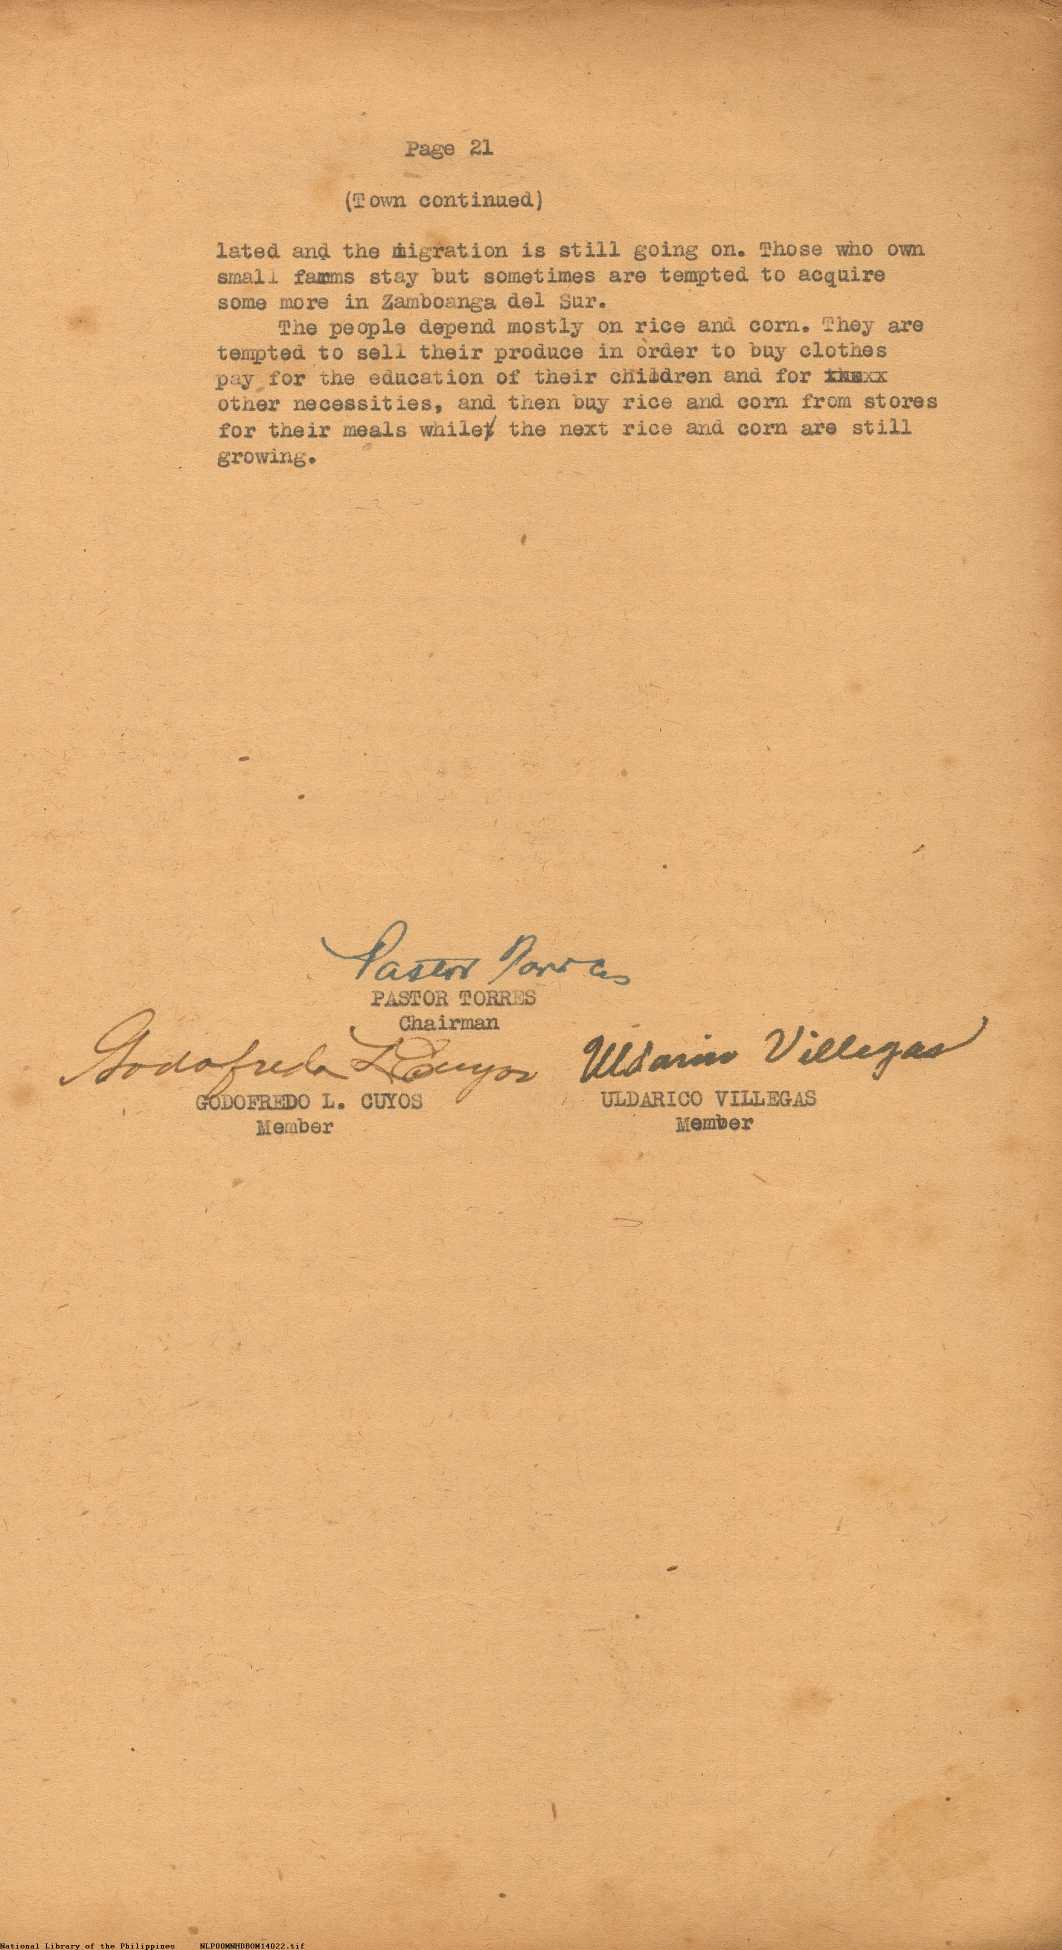 Page 21
(Town continued)
lated and the migration is still going on. Those who own
small farms stay but sometimes are tempted to acquire
some more in Zamboanga del Sur.
The people depend mostly on rice and corn. They are
tempted to sell their produce in order to buy clothes
pay for the education of their children and for
other necessities, and then buy rice and corn from stores
for their meals while the next rice and corn are still
growing.
Pastor Torres
PASTOR TORRES
Chairman
Godofredo L Cuyos Uldarico Villegas
GODOFREDO L. CUYOS ULDARICO VILLEGAS
Member Member
National Library of the Philippines NLPOOMNHDBOM14022.tif